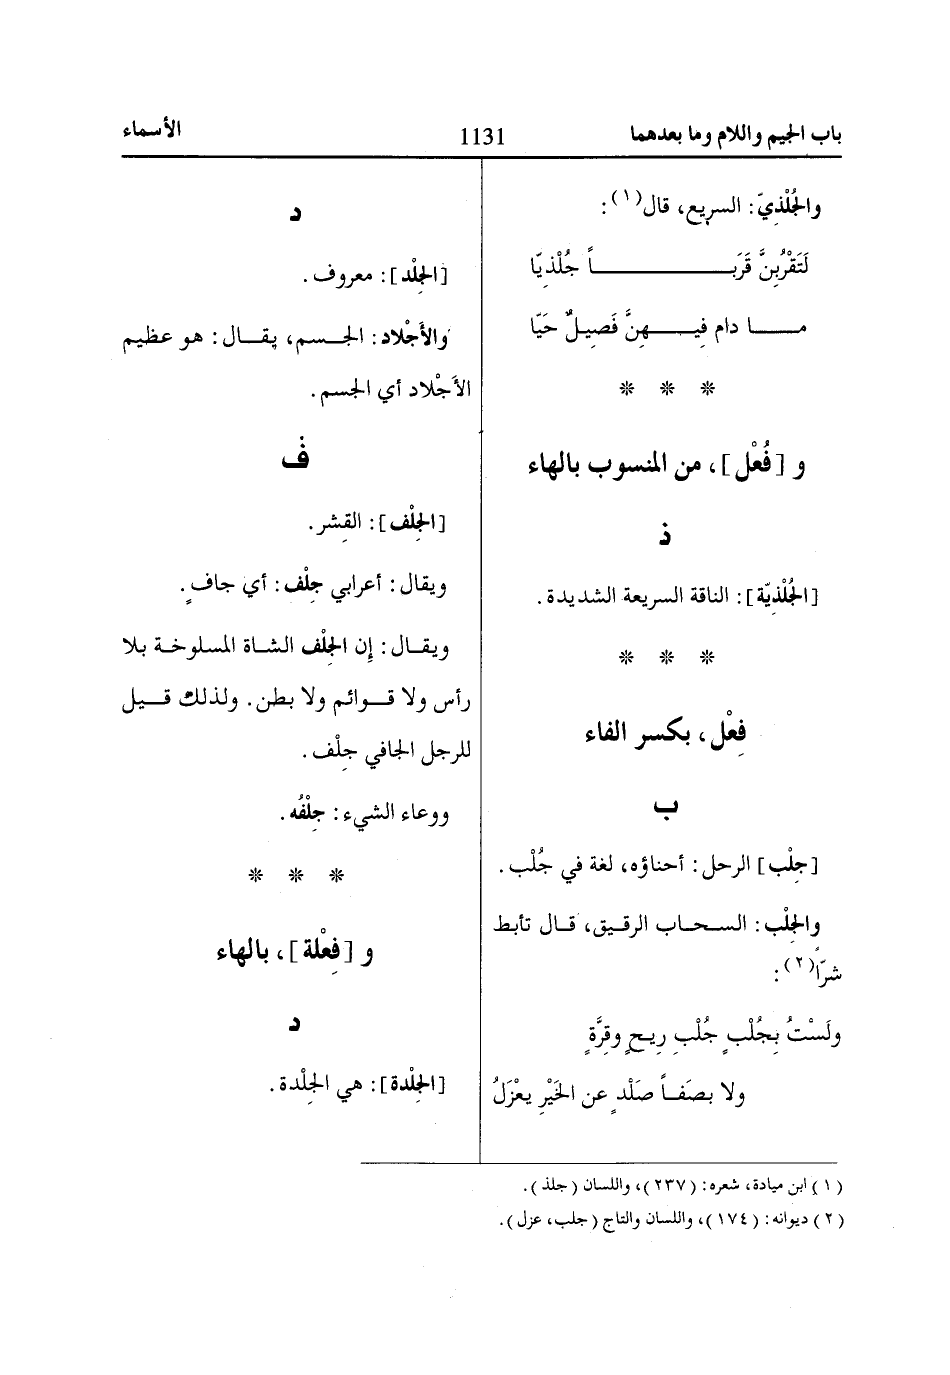 باب الجيم واللام وما بعدهما
1131
الأسماء
والجُلْذيّ: السريع، قال(١):
لَتَقْرُبِنَّ قَرَبــاً جُلْذيّا
مــا دام فِيــهِنَّ فَصِيلٌ حَيّا
* * *
و [فُعْل]، من المنسوب بالهاء
ذ
[الجُلْذِيّة]: الناقة السريعة الشديدة.
* * *
فِعْل، بكسر الفاء
ب
[جِلْب] الرحل: أحناؤه، لغة في جُلْب.
والجِلْب: السحاب الرقيق، قال تأبط
شرّاً(٢):
ولَسْتُ بِجُلْبٍ جُلْبِ رِيحٍ وقِرَّةٍ
ولا بصَفاً صَلْدٍ عن الخَيْرِ يعْزَلُ
د
[الجِلْد]: معروف.
والأَجْلاد: الجسم، يقال: هو عظيم
الأَجْلاد أي الجسم.
ف
[الجِلْف]: القِشر.
ويقال: أعرابي جِلْف: أي جافٍ.
ويقال: إِن الجِلْف الشاة المسلوخة بلا
رأس ولا قوائم ولا بطن. ولذلك قيل
للرجل الجافي جِلْف.
ووعاء الشيء: جِلْفُه.
* * *
و [فِعْلة]، بالهاء
د
[الجِلْدة]: هي الجِلْدة.
(١) ابن ميادة، شعره: (٢٣٧)، واللسان (جلذ).
(٢) ديوانه: (١٧٤)، واللسان والتاج (جلب، عزل).